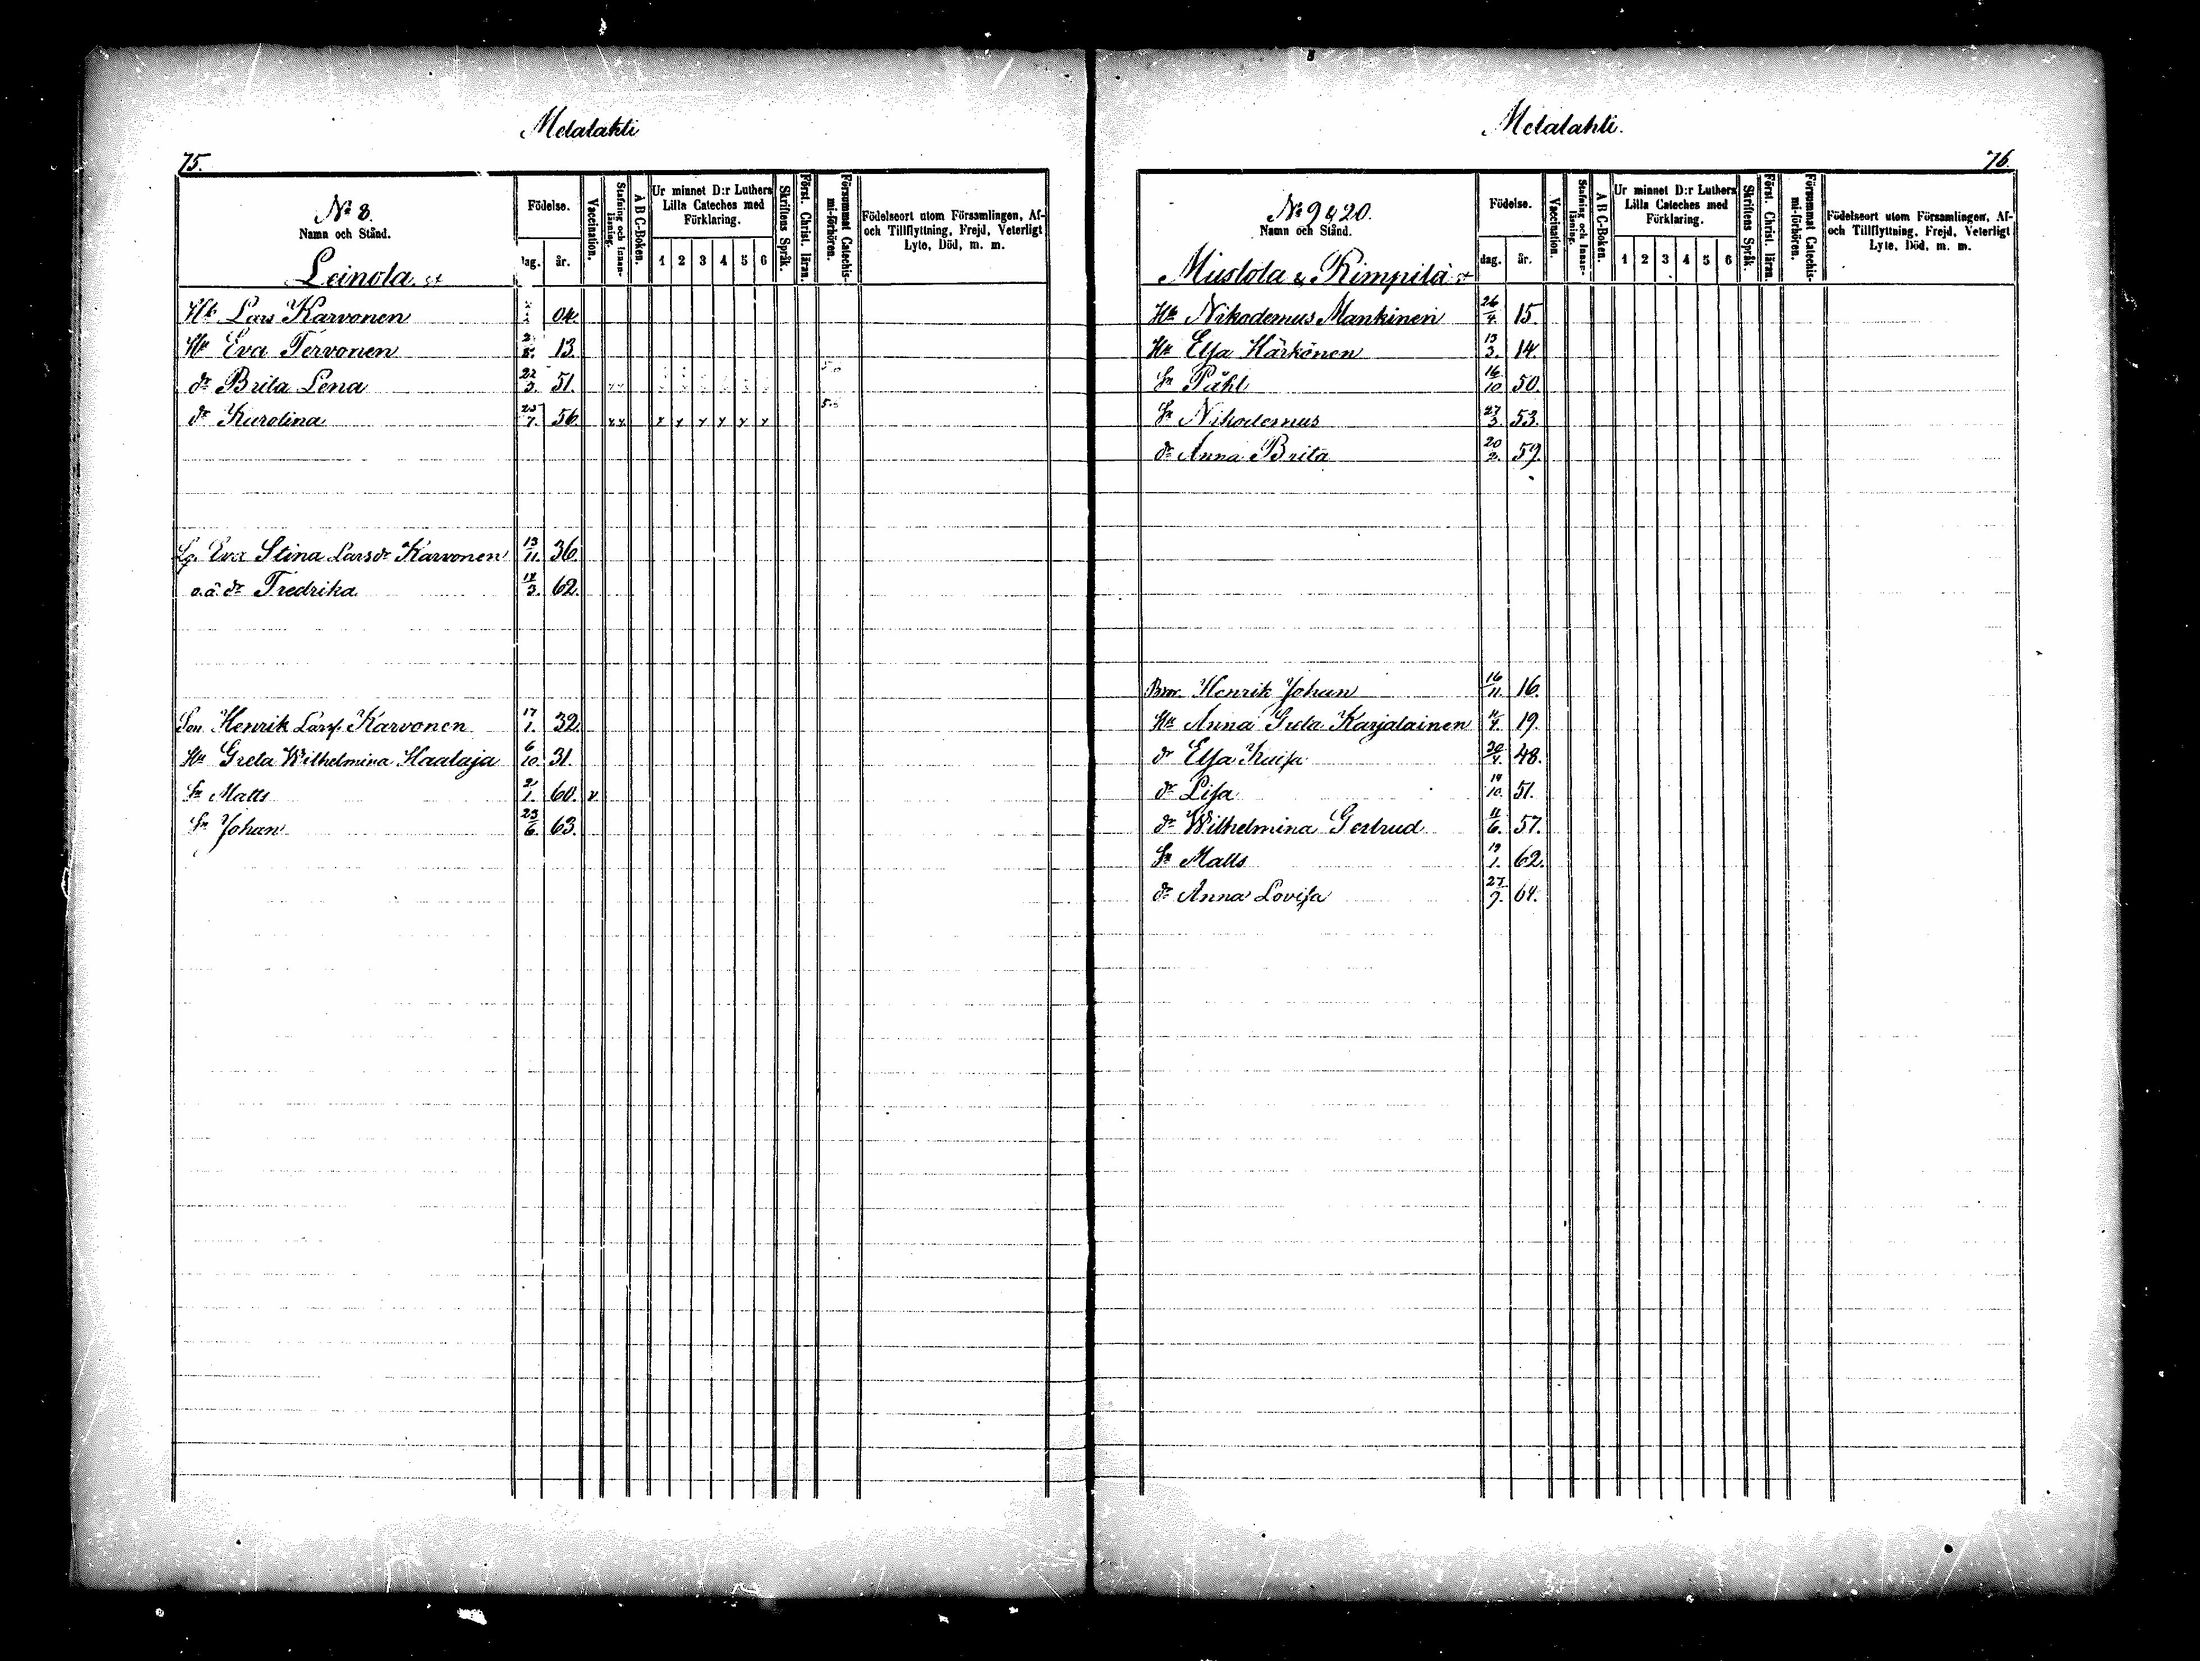 Melalahti
75.
No 8.
Namn och Stånd.
Födelse.
dag. år.
Vaccination.
Stafning och Innanläsning.
A B C-Boken.
Ur minnet D:r Luthers Lilla Cateches med Förklaring.
1 2 3 4 5 6
Skriftens Språk.
Först. Christ. läran.
Försummat Catechismi-förhören.
Födelseort utom Församlingen, Af- och Tillflyttning, Frejd, Veterligt Lyte, Död, m. m.
Leinola st
Hb Lars Karvonen 04.
Hu Eva Tervonen 13.
dr Brita Lena 22/3. 51.
dr Karolina 25/7. 56
Lg. Eva Stina Larsdr Karvonen 13/11. 36.
o.ä. dr Fredrika 14/3. 62.
Son Henrik Larss. Karvonen 17/1. 32.
Hu Greta Wilhelmina Haataja 6/10. 31.
Sn Matts 2/1. 60. v
Sn Johan 23/6. 63.
Melalahti.
76.
No 9 & 20.
Namn och Stånd.
Födelse.
dag. år.
Vaccination.
Stafning och Innanläsning.
A B C-Boken.
Ur minnet D:r Luthers Lilla Cateches med Förklaring.
1 2 3 4 5 6
Skriftens Språk.
Först. Christ. läran.
Försummat Catechismi-förhören.
Födelseort utom Församlingen, Af- och Tillflyttning, Frejd, Veterligt Lyte, Död, m. m.
Mustola & Kimpilä st
Hb Nikodemus Mankinen 26/4. 15.
Hu Elsa Härkönen 13/3. 14.
Sn Påhl 16/10 50.
Sn Nikodemus 27/3. 53.
dr Anna Brita 20/2. 59.
Bror Henrik Johan 16/11. 16.
Hu Anna Greta Karjalainen 11/4. 19.
dr Elsa Kaisa 30/4. 48.
dr Lisa 19/10. 51.
dr Wilhelmina Gertrud 11/6. 57.
Sn Matts 19/1. 62.
dr Anna Lovisa 27/9. 64.